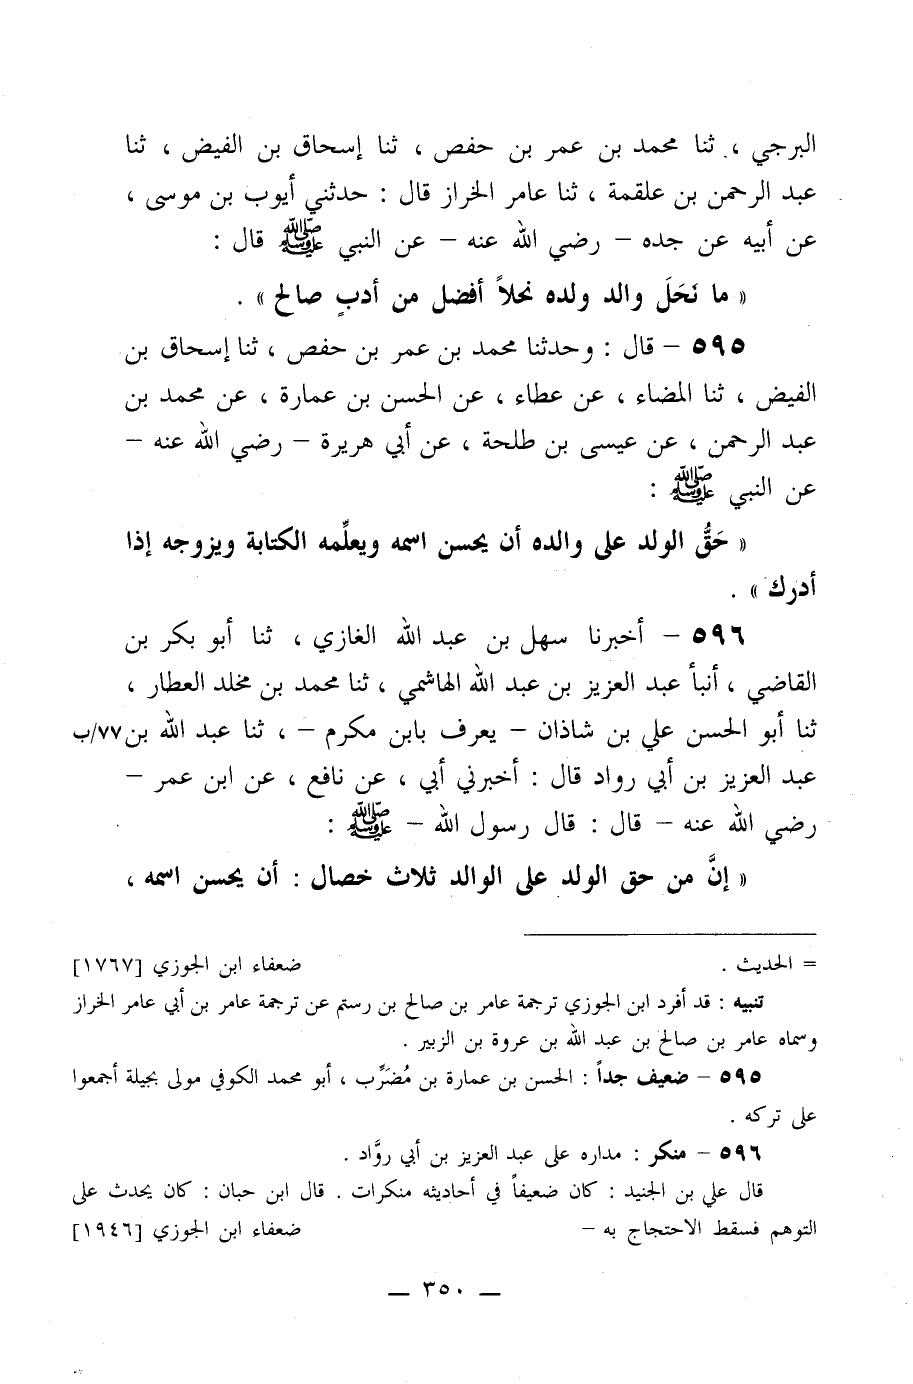 البرجي ، ثنا محمد بن عمر بن حفص ، ثنا إسحاق بن الفيض ، ثنا
عبد الرحمن بن علقمة ، ثنا عامر الخراز قال : حدثني أيوب بن موسى ،
عن أبيه عن جده – رضي الله عنه – عن النبي ﷺ قال :
« ما نَحَلَ والد ولده نحلاً أفضل من أدبٍ صالح » .
٥٩٥ – قال : وحدثنا محمد بن عمر بن حفص ، ثنا إسحاق بن
الفيض ، ثنا المضاء ، عن عطاء ، عن الحسن بن عمارة ، عن محمد بن
عبد الرحمن ، عن عيسى بن طلحة ، عن أبي هريرة – رضي الله عنه –
عن النبي ﷺ :
« حَقُّ الولد على والده أن يحسن اسمه ويعلِّمه الكتابة ويزوجه إذا
أدرك » .
٥٩٦ – أخبرنا سهل بن عبد الله الغازي ، ثنا أبو بكر بن
القاضي ، أنبأ عبد العزيز بن عبد الله الهاشمي ، ثنا محمد بن مخلد العطار ،
ثنا أبو الحسن علي بن شاذان – يعرف بابن مكرم – ، ثنا عبد الله بن ٧٧/ب
عبد العزيز بن أبي رواد قال : أخبرني أبي ، عن نافع ، عن ابن عمر –
رضي الله عنه – قال : قال رسول الله – ﷺ :
« إنَّ من حق الولد على الوالد ثلاث خصال : أن يحسن اسمه ،
= الحديث . ضعفاء ابن الجوزي [١٧٦٧]
تنبيه : قد أفرد ابن الجوزي ترجمة عامر بن صالح بن رستم عن ترجمة عامر بن أبي عامر الخراز
وسماه عامر بن صالح بن عبد الله بن عروة بن الزبير .
٥٩٥ – ضعيف جداً : الحسن بن عمارة بن مُضَرِّب ، أبو محمد الكوفي مولى بجيلة أجمعوا
على تركه .
٥٩٦ – منكر : مداره على عبد العزيز بن أبي روَّاد .
قال علي بن الجنيد : كان ضعيفاً في أحاديثه منكرات . قال ابن حبان : كان يحدث على
التوهم فسقط الاحتجاج به – ضعفاء ابن الجوزي [١٩٤٦]
— ٣٥٠ —